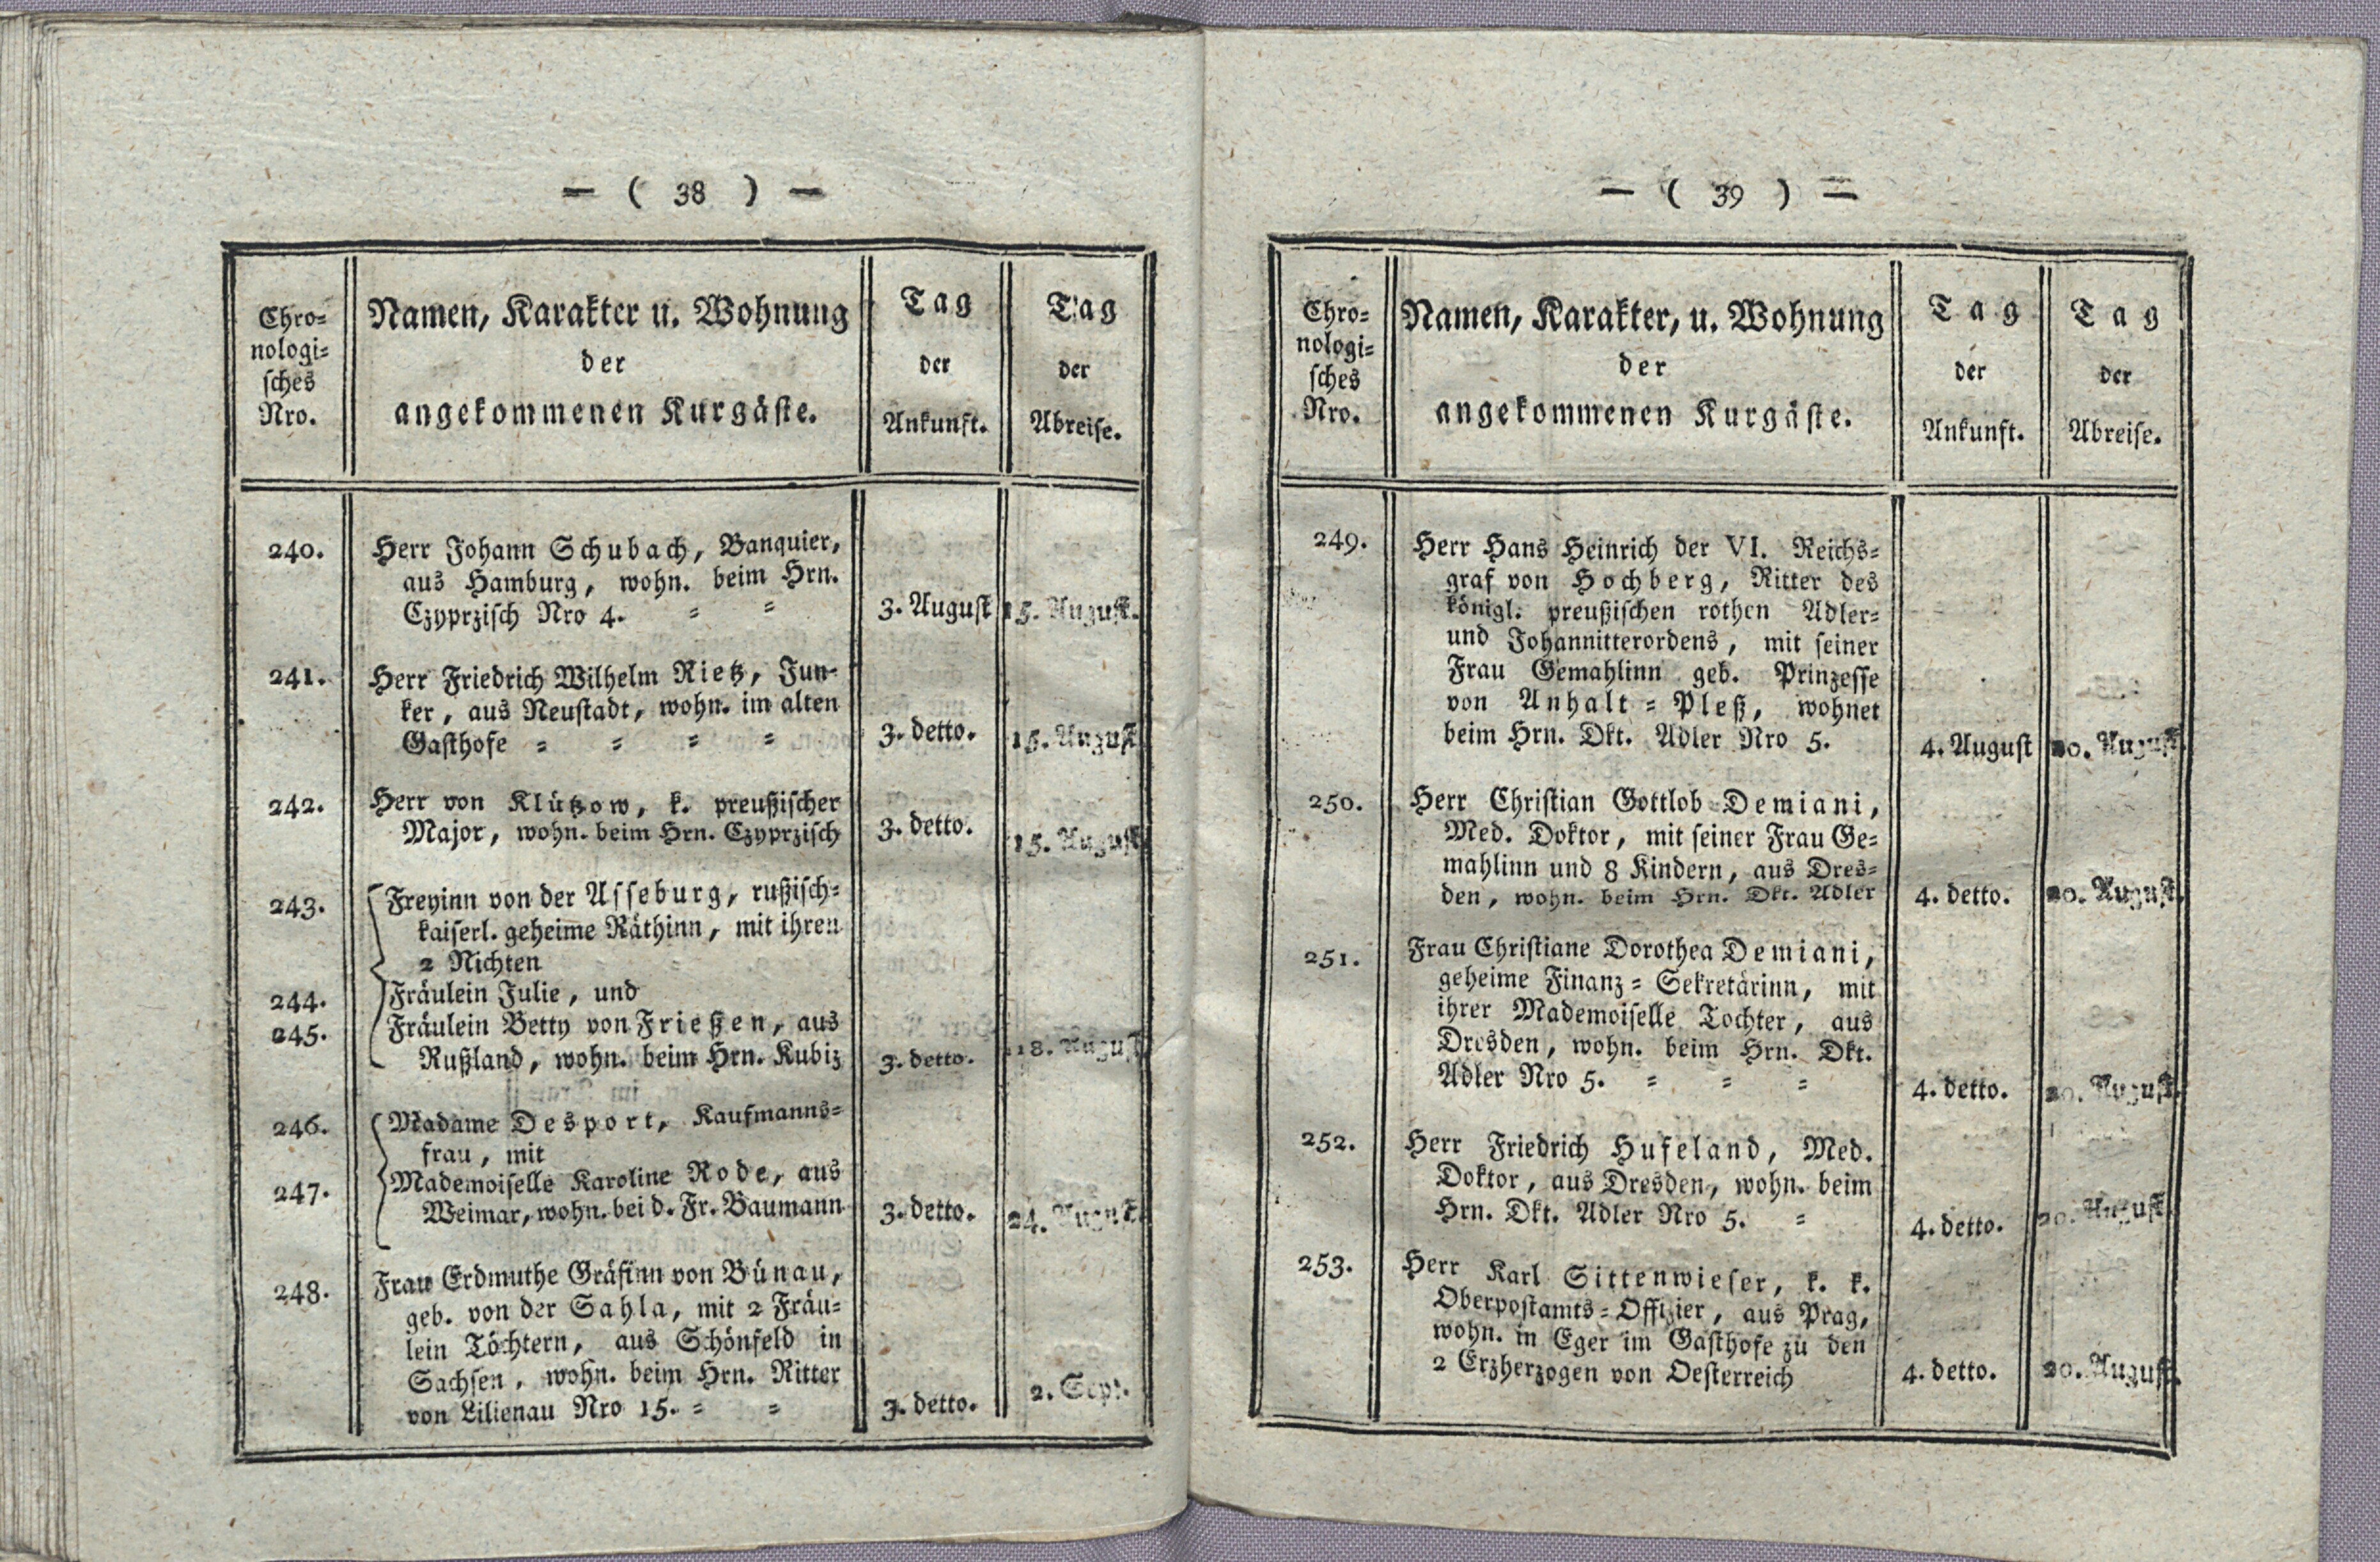 — ( 38 ) —
Chro-
nologi-
sches
Nro.
Namen, Karakter u. Wohnung
der
angekommenen Kurgäste.
Tag
der
Ankunft.
Tag
der
Abreise.
240. Herr Johann Schubach, Banquier,
aus Hamburg, wohn. beim Hrn.
Czyprzisch Nro 4. = = 3. August 15. August.
241. Herr Friedrich Wilhelm Rietz, Jun-
ker, aus Neustadt, wohn. im alten
Gasthofe = = = = 3. detto. 15. August
242. Herr von Klützow, k. preußischer
Major, wohn. beim Hrn. Czyprzisch 3. detto. 15. August
243. Freyinn von der Asseburg, rußisch-
kaiserl. geheime Räthinn, mit ihren
2 Nichten
244. Fräulein Julie, und
245. Fräulein Betty von Frießen, aus
Rußland, wohn. beim Hrn. Kubiz 3. detto. 18. August
246. Madame Desport, Kaufmanns-
frau, mit
247. Mademoiselle Karoline Rode, aus
Weimar, wohn. bei d. Fr. Baumann 3. detto. 24. August.
248. Frau Erdmuthe Gräfinn von Bünau,
geb. von der Sahla, mit 2 Fräu-
lein Töchtern, aus Schönfeld in
Sachsen, wohn. beim Hrn. Ritter
von Lilienau Nro 15. = = 3. detto. 2. Sept.
— ( 39 ) —
Chro-
nologi-
sches
Nro.
Namen, Karakter, u. Wohnung
der
angekommenen Kurgäste.
Tag
der
Ankunft.
Tag
der
Abreise.
249. Herr Hans Heinrich der VI. Reichs-
graf von Hochberg, Ritter des
königl. preußischen rothen Adler-
und Johannitterordens, mit seiner
Frau Gemahlinn geb. Prinzesse
von Anhalt = Pleß, wohnet
beim Hrn. Dkt. Adler Nro 5. 4. August 20. August.
250. Herr Christian Gottlob Demiani,
Med. Doktor, mit seiner Frau Ge-
mahlinn und 8 Kindern, aus Dres-
den, wohn. beim Hrn. Dkt. Adler 4. detto. 20. August.
251. Frau Christiane Dorothea Demiani,
geheime Finanz = Sekretärinn, mit
ihrer Mademoiselle Tochter, aus
Dresden, wohn. beim Hrn. Dkt.
Adler Nro 5. = = = 4. detto. 20. August.
252. Herr Friedrich Hufeland, Med.
Doktor, aus Dresden, wohn. beim
Hrn. Dkt. Adler Nro 5. = 4. detto. 20. August.
253. Herr Karl Sittenwieser, k. k.
Oberpostamts = Offizier, aus Prag,
wohn. in Eger im Gasthofe zu den
2 Erzherzogen von Oesterreich 4. detto. 20. August.